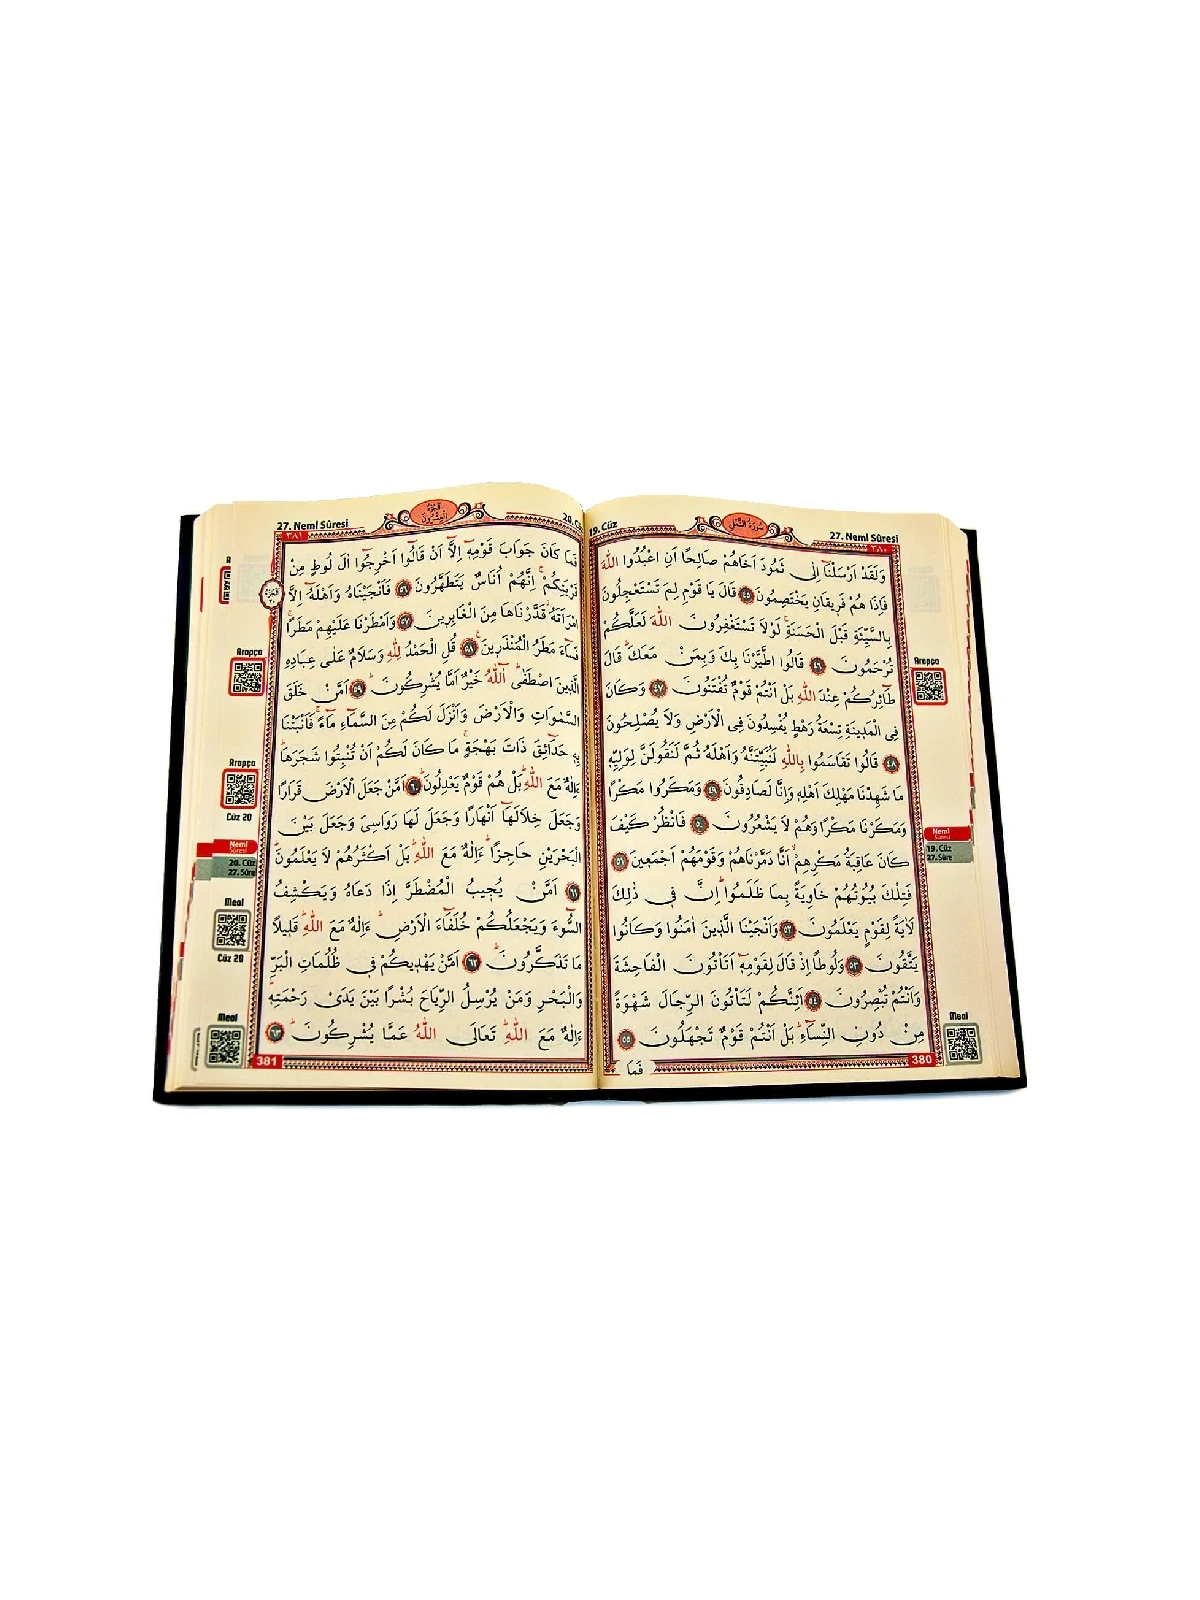 19. Cüz
سُورَةُ النَّمْلِ
27. Neml Sûresi
٣٨٠
وَلَقَدْ اَرْسَلْنَٓا اِلٰى ثَمُودَ اَخَاهُمْ صَالِحًا اَنِ اعْبُدُوا اللّٰهَ
فَاِذَا هُمْ فَر۪يقَانِ يَخْتَصِمُونَ ٤٥ قَالَ يَا قَوْمِ لِمَ تَسْتَعْجِلُونَ
بِالسَّيِّئَةِ قَبْلَ الْحَسَنَةِۚ لَوْلَا تَسْتَغْفِرُونَ اللّٰهَ لَعَلَّكُمْ
تُرْحَمُونَ ٤٦ قَالُوا اطَّيَّرْنَا بِكَ وَبِمَنْ مَعَكَۜ قَالَ
طَٓائِرُكُمْ عِنْدَ اللّٰهِ بَلْ اَنْتُمْ قَوْمٌ تُفْتَنُونَ ٤٧ وَكَانَ
فِي الْمَد۪ينَةِ تِسْعَةُ رَهْطٍ يُفْسِدُونَ فِي الْاَرْضِ وَلَا يُصْلِحُونَ
٤٨ قَالُوا تَقَاسَمُوا بِاللّٰهِ لَنُبَيِّتَنَّهُ وَاَهْلَهُ ثُمَّ لَنَقُولَنَّ لِوَلِيِّه۪
مَا شَهِدْنَا مَهْلِكَ اَهْلِه۪ وَاِنَّا لَصَادِقُونَ ٤٩ وَمَكَرُوا مَكْرًا
وَمَكَرْنَا مَكْرًا وَهُمْ لَا يَشْعُرُونَ ٥٠ فَانْظُرْ كَيْفَ
كَانَ عَاقِبَةُ مَكْرِهِمْۙ اَنَّا دَمَّرْنَاهُمْ وَقَوْمَهُمْ اَجْمَع۪ينَ ٥١
فَتِلْكَ بُيُوتُهُمْ خَاوِيَةً بِمَا ظَلَمُواۜ اِنَّ ف۪ي ذٰلِكَ
لَاٰيَةً لِقَوْمٍ يَعْلَمُونَ ٥٢ وَاَنْجَيْنَا الَّذ۪ينَ اٰمَنُوا وَكَانُوا
يَتَّقُونَ ٥٣ وَلُوطًا اِذْ قَالَ لِقَوْمِه۪ٓ اَتَأْتُونَ الْفَاحِشَةَ
وَاَنْتُمْ تُبْصِرُونَ ٥٤ اَئِنَّكُمْ لَتَأْتُونَ الرِّجَالَ شَهْوَةً
مِنْ دُونِ النِّسَٓاءِۜ بَلْ اَنْتُمْ قَوْمٌ تَجْهَلُونَ ٥٥
فَمَا
380
Arapça
Neml
Sûresi
19. Cüz
27. Sûre
Meal
27. Neml Sûresi
اَلْجُزْءُ الْعِشْرُونَ
20. Cüz
٣٨١
فَمَا كَانَ جَوَابَ قَوْمِه۪ٓ اِلَّٓا اَنْ قَالُٓوا اَخْرِجُٓوا اٰلَ لُوطٍ مِنْ
قَرْيَتِكُمْۚ اِنَّهُمْ اُنَاسٌ يَتَطَهَّرُونَ ٥٦ فَاَنْجَيْنَاهُ وَاَهْلَهُٓ اِلَّا
امْرَاَتَهُۘ قَدَّرْنَاهَا مِنَ الْغَابِر۪ينَ ٥٧ وَاَمْطَرْنَا عَلَيْهِمْ مَطَرًاۚ
فَسَٓاءَ مَطَرُ الْمُنْذَر۪ينَ۟ ٥٨ قُلِ الْحَمْدُ لِلّٰهِ وَسَلَامٌ عَلٰى عِبَادِهِ
الَّذ۪ينَ اصْطَفٰىۜ آٰللّٰهُ خَيْرٌ اَمَّا يُشْرِكُونَۜ ٥٩ اَمَّنْ خَلَقَ
السَّمٰوَاتِ وَالْاَرْضَ وَاَنْزَلَ لَكُمْ مِنَ السَّمَٓاءِ مَٓاءًۚ فَاَنْبَتْنَا
بِه۪ حَدَٓائِقَ ذَاتَ بَهْجَةٍۚ مَا كَانَ لَكُمْ اَنْ تُنْبِتُوا شَجَرَهَاۜ
ءَاِلٰهٌ مَعَ اللّٰهِۜ بَلْ هُمْ قَوْمٌ يَعْدِلُونَۜ ٦٠ اَمَّنْ جَعَلَ الْاَرْضَ قَرَارًا
وَجَعَلَ خِلَالَهَٓا اَنْهَارًا وَجَعَلَ لَهَا رَوَاسِيَ وَجَعَلَ بَيْنَ
الْبَحْرَيْنِ حَاجِزًاۜ ءَاِلٰهٌ مَعَ اللّٰهِۜ بَلْ اَكْثَرُهُمْ لَا يَعْلَمُونَۜ
٦١ اَمَّنْ يُج۪يبُ الْمُضْطَرَّ اِذَا دَعَاهُ وَيَكْشِفُ
السُّٓوءَ وَيَجْعَلُكُمْ خُلَفَٓاءَ الْاَرْضِۜ ءَاِلٰهٌ مَعَ اللّٰهِۜ قَل۪يلًا
مَا تَذَكَّرُونَۜ ٦٢ اَمَّنْ يَهْد۪يكُمْ ف۪ي ظُلُمَاتِ الْبَرِّ
وَالْبَحْرِ وَمَنْ يُرْسِلُ الرِّيَاحَ بُشْرًا بَيْنَ يَدَيْ رَحْمَتِه۪ۜ
ءَاِلٰهٌ مَعَ اللّٰهِۜ تَعَالَى اللّٰهُ عَمَّا يُشْرِكُونَۜ ٦٣
381
Arapça
Arapça
Cüz 20
Neml
Sûresi
20. Cüz
27. Sûre
Meal
Cüz 20
Meal